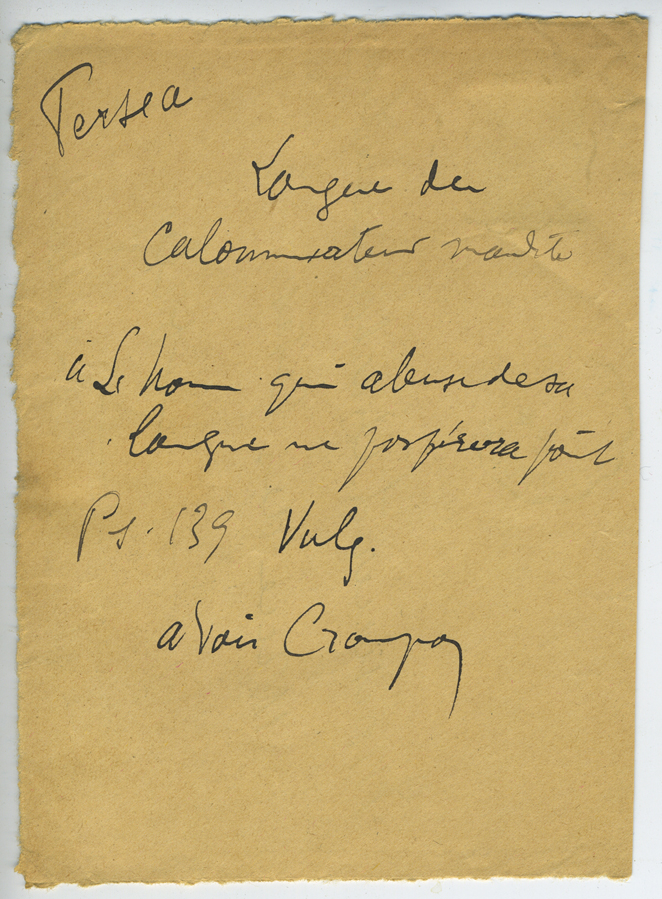 Langue du
Calomniateur maudite
« L'homme qui abuse de sa
langue ne prospérera point
Ps. 139 Vulg.
a voir Crampon